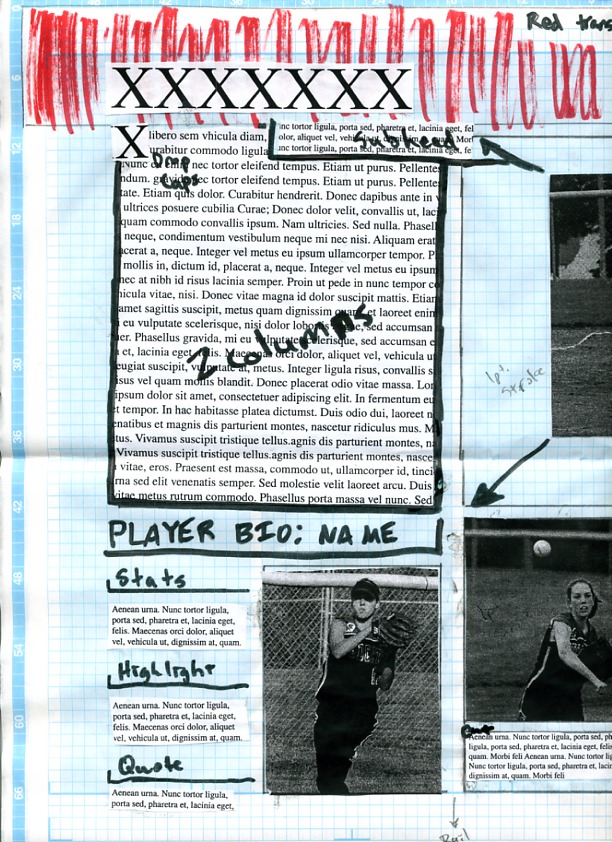 Red trans
XXXXXXX
X libero sem vehicula diam,
urabitur commodo ligula
Drop
Caps
nc tortor ligula, porta sed, pharetra et, lacinia eget, fel
olor, aliquet vel,
Subhead
porta sed, pharetra et, lacinia eget, fe
nec tortor eleifend tempus. Etiam ut purus. Pellente
ndum. nec tortor eleifend tempus. Etiam ut purus. Pellente
tate. Etiam quis dolor. Curabitur hendrerit. Donec dapibus ante in
ultrices posuere cubilia Curae; Donec dolor velit, convallis ut, laci
quam commodo convallis ipsum. Nam ultricies. Sed nulla. Phasell
neque, condimentum vestibulum neque mi nec nisi. Aliquam erat
acerat a, neque. Integer vel metus eu ipsum ullamcorper tempor. P
mollis in, dictum id, placerat a, neque. Integer vel metus eu ipsum
nec at nibh id risus lacinia semper. Proin ut pede in nunc tempor co
hicula vitae, nisi. Donec vitae magna id dolor suscipit mattis. Etiam
amet sagittis suscipit, metus quam dignissim et laoreet enim
i eu vulputate scelerisque, nisi dolor sed accumsan
er. Phasellus gravida, mi eu scelerisque, sed accumsan e
a et, lacinia eget, Maecenas orci dolor, aliquet vel, vehicula u
feugiat suscipit, at, metus. Integer ligula risus, convallis s
isus vel quam mollis blandit. Donec placerat odio vitae massa. Lor
ipsum dolor sit amet, consectetuer adipiscing elit. In fermentum eu
et tempor. In hac habitasse platea dictumst. Duis odio dui, laoreet n
enatibus et magnis dis parturient montes, nascetur ridiculus mus. M
tus. Vivamus suscipit tristique tellus.agnis dis parturient montes, na
Vivamus suscipit tristique tellus.agnis dis parturient montes, nasce
vitae, eros. Praesent est massa, commodo ut, ullamcorper id, tinci
rna sed elit venenatis semper. Sed molestie velit laoreet arcu. Duis
vitae metus rutrum commodo. Phasellus porta massa vel nunc. Sed
2 columns
1pt.
Stroke
PLAYER BIO: NAME
Stats
Aenean urna. Nunc tortor ligula,
porta sed, pharetra et, lacinia eget,
felis. Maecenas orci dolor, aliquet
vel, vehicula ut, dignissim at, quam.
Highlight
Aenean urna. Nunc tortor ligula,
porta sed, pharetra et, lacinia eget,
felis. Maecenas orci dolor, aliquet
vel, vehicula ut, dignissim at, quam.
Quote
Aenean urna. Nunc tortor ligula,
porta sed, pharetra et, lacinia eget,
Aenean urna. Nunc tortor ligula, porta sed, ph
ligula, porta sed, pharetra et, lacinia eget, fe
quam. Morbi feli Aenean urna. Nunc tortor li
Nunc tortor ligula, porta sed, pharetra et, laci
dignissim at, quam. Morbi feli